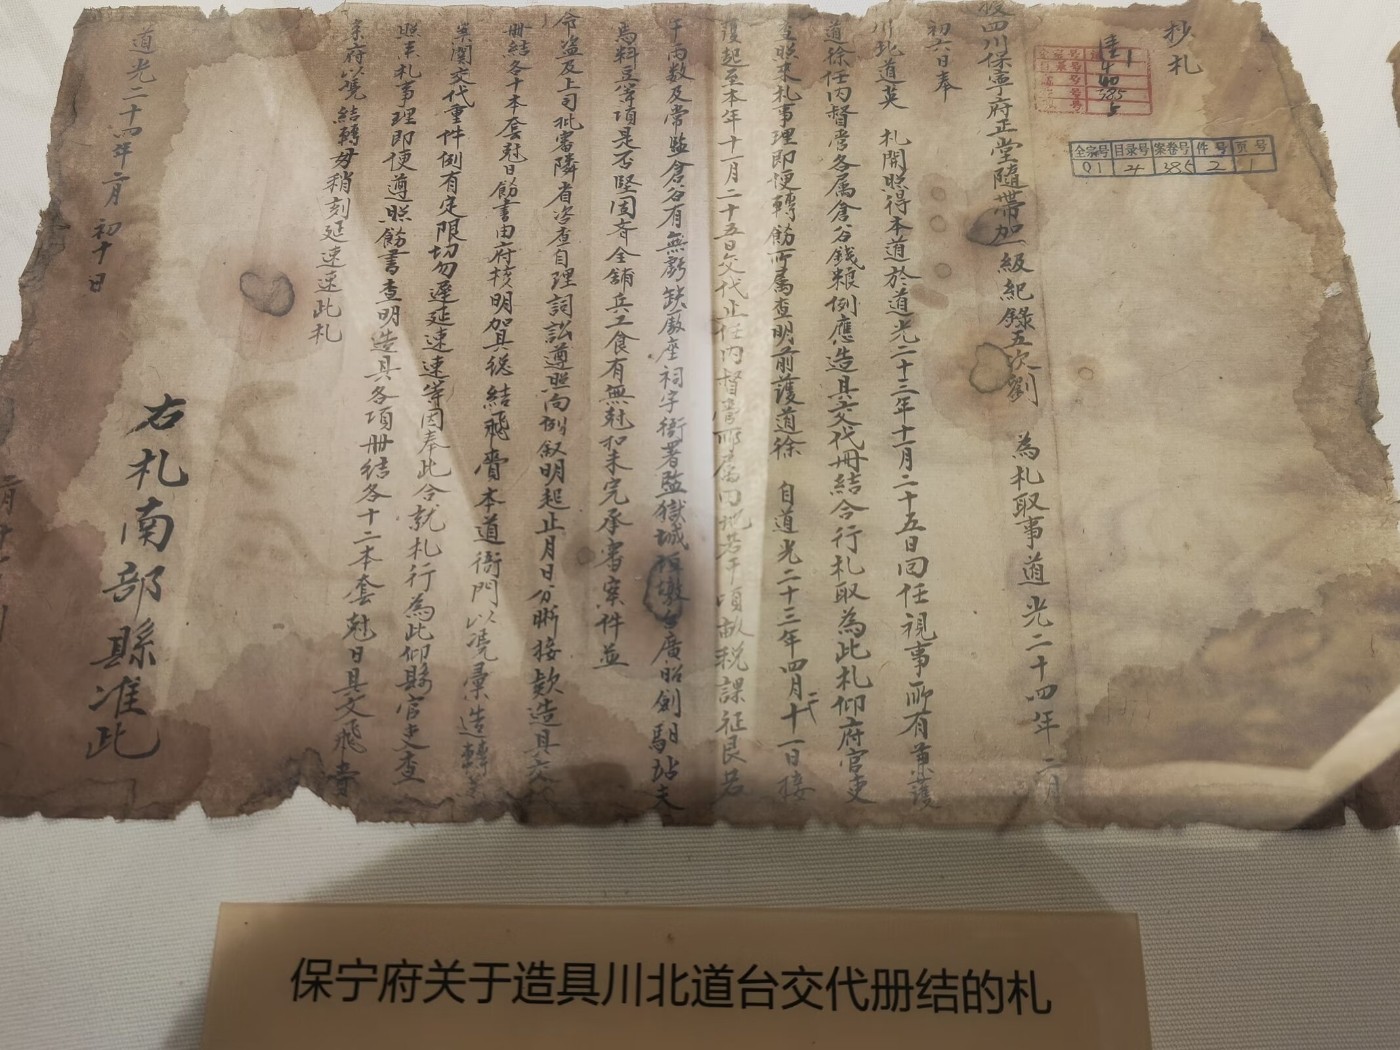 抄札
全宗号 目录号 案卷号 件号 页号
01 4 385 2 1
四川保寧府正堂隨帶加一級紀錄五次劉 為札取事道光二十四年二月
初六日奉
川北道英 札開照得本道於道光二十三年十一月二十五日回任視事所有前護
道徐任内督啻各属倉谷錢粮例應造具交代冊結合行札取為此札仰府官吏
查照来札事理即便轉飭所属查明前護道徐 自道光二十三年四月二十一日接
護起至本年十一月二十五日交代止任内督啻所属田地若干頃畝税課征良若
干両数及常監倉谷有無虧缺廒座祠宇衙署監獄城 廣昭劍馹站夫
馬料豆等項是否堅固斉全舖兵工食有無尅扣未完承審案件並
命盗及上司批審隣省咨查自理詞訟遵照向例叙明起止月日分晰接欵造具交
冊結各十本套尅日飭書由府核明加具總結飛賫本道衙門以凴彙造轉
案関交代重件例有定限切勿遲延速速等因奉此合就札行為此仰縣官吏查
照来札事理即便遵照飭書查明造具各項冊結各十二本套尅日具文飛賫
来府以凴結轉毋稍刻延速速此札
右札南部縣准此
道光二十四年二月初十日
保宁府关于造具川北道台交代册结的札